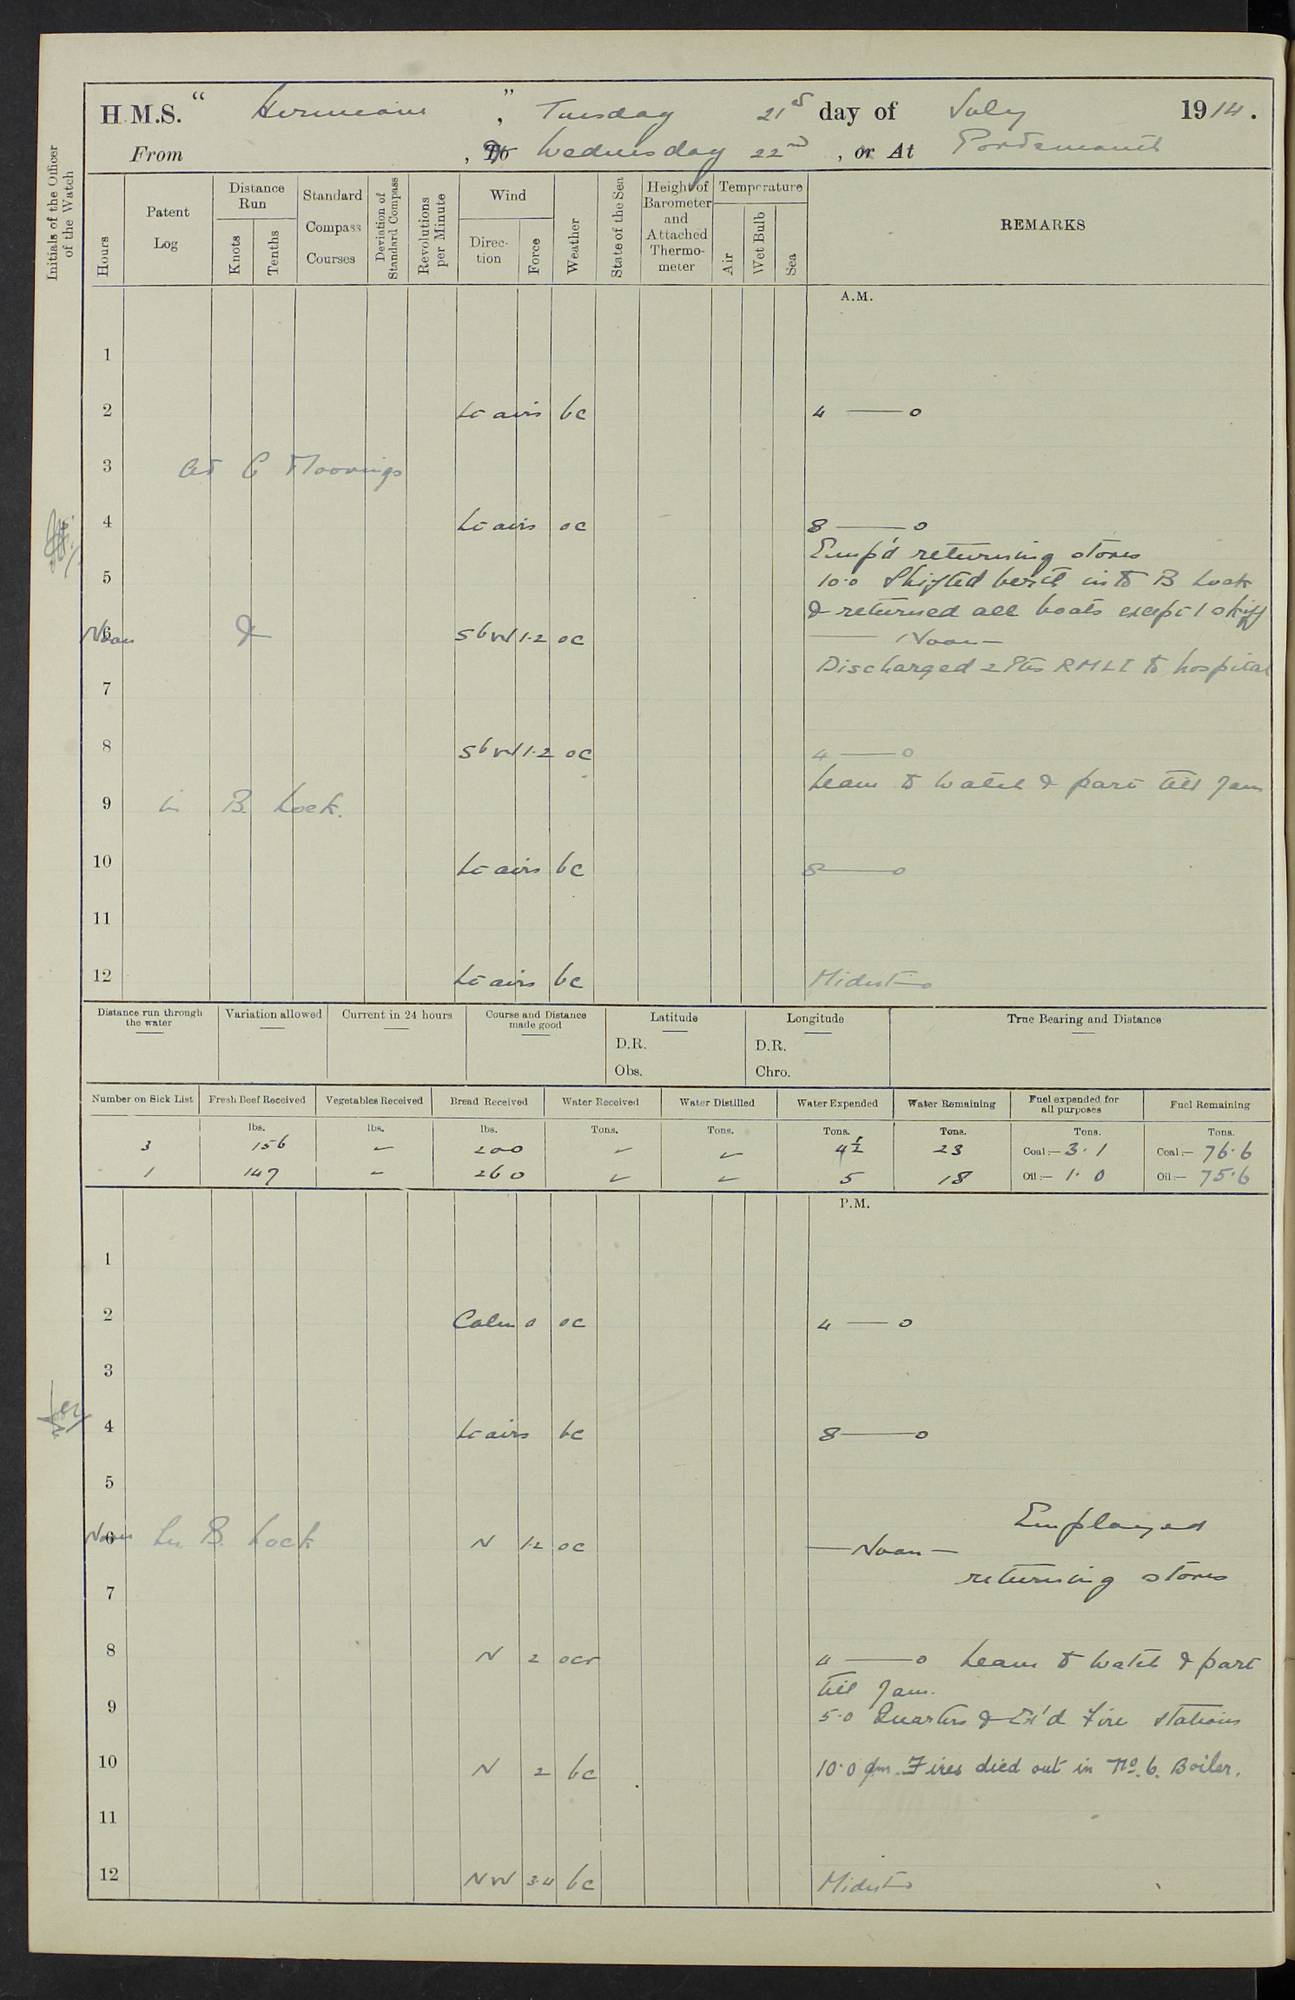 H.M.S. " Hermione ", Tuesday 21st day of July 1914.
From , To & Wednesday 22nd , or At Portsmouth
Initials of the Officer of the Watch
Hours
Patent Log
Distance Run
Knots
Tenths
Standard Compass Courses
Deviation of Standard Compass
Revolutions per Minute
Wind
Direction
Force
Weather
State of the Sea
Height of Barometer and Attached Thermometer
Temperature
Air
Wet Bulb
Sea
REMARKS
A.M.
1
2 Lt airs bc 4 — 0
3 At C Moorings
4 Lt airs oc 8 — 0
Emp'd returning stores
5 10.0 Shifted berth into B Lock
& returned all boats except 1 skiff
6 Noon & SbW 1.2 oc — Noon —
Discharged 2 Ptes RMLI to hospital
7
8 SbW 1.2 oc 4 — 0
Leave to watch & part till 7am
9 in B. Lock.
10 Lt airs bc 8 — 0
11
12 Lt airs bc Midnt
Distance run through the water
Variation allowed
Current in 24 hours
Course and Distance made good
Latitude
D.R.
Obs.
Longitude
D.R.
Chro.
True Bearing and Distance
Number on Sick List Fresh Beef Received Vegetables Received Bread Received Water Received Water Distilled Water Expended Water Remaining Fuel expended for all purposes Fuel Remaining
lbs. lbs. lbs. Tons. Tons. Tons. Tons. Tons. Tons.
3 156 – 200 – – 4½ 23 Coal:— 3.1 Coal:— 76.6
1 147 – 260 – – 5 18 Oil:— 1.0 Oil:— 75.6
P.M.
1
2 Calm 0 oc 4 — 0
3
4 Lt airs bc 8 — 0
5
Employed
6 Noon In B. Lock N 1.2 oc — Noon —
returning stores
7
8 N 2 ocr 4 — 0 Leave to watch & part
till 7am.
9 5.0 Quarters & Ex'd Fire Stations
10 N 2 bc 10.0 pm. Fires died out in No. 6. Boiler.
11
12 NW 3.4 bc Midnt